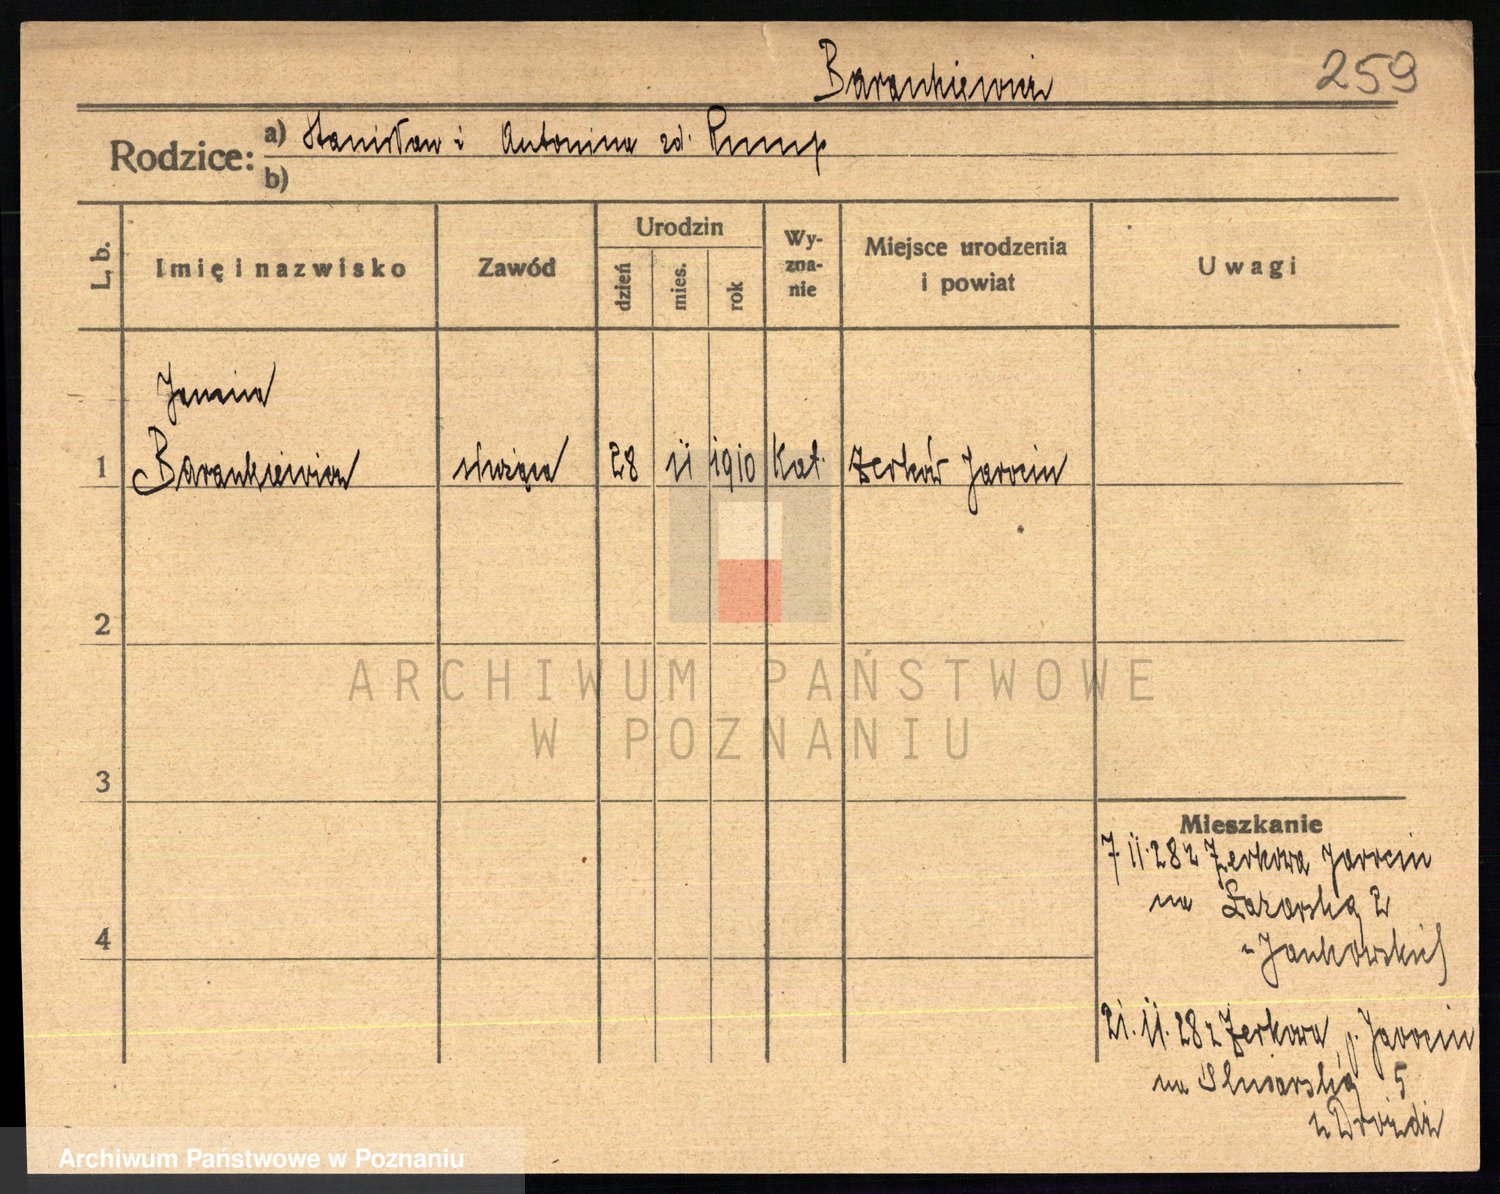 Barankiewicz
259
Rodzice: a) Stanisław i Antonina zd. Pump
b)
L. b.
Imię i nazwisko
Zawód
Urodzin
dzień
mies.
rok
Wy-
zna-
nie
Miejsce urodzenia
i powiat
Uwagi
Janina
1 Barankiewicz służąca 28 11 1910 Kat. Żerków Jarocin
2
3
4
ARCHIWUM PAŃSTWOWE
W POZNANIU
Mieszkanie
7.11.28 z Żerkowa Jarocin
na Łazarską 2
Jankowskich
21.11.28 z Żerkowa, p. Jarocin
na Ślusarską 5
Archiwum Państwowe w Poznaniu